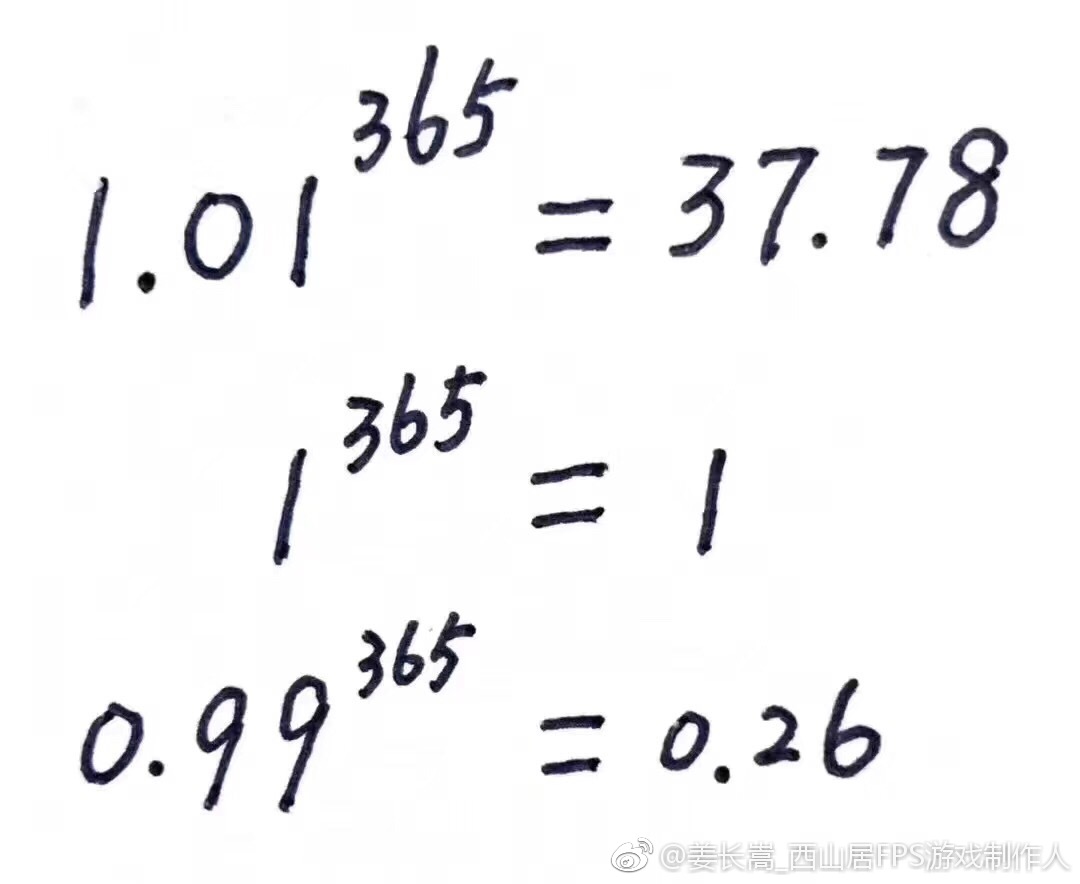 1.01³⁶⁵ = 37.78
1³⁶⁵ = 1
0.99³⁶⁵ = 0.26
@姜长嵩_西山居FPS游戏制作人